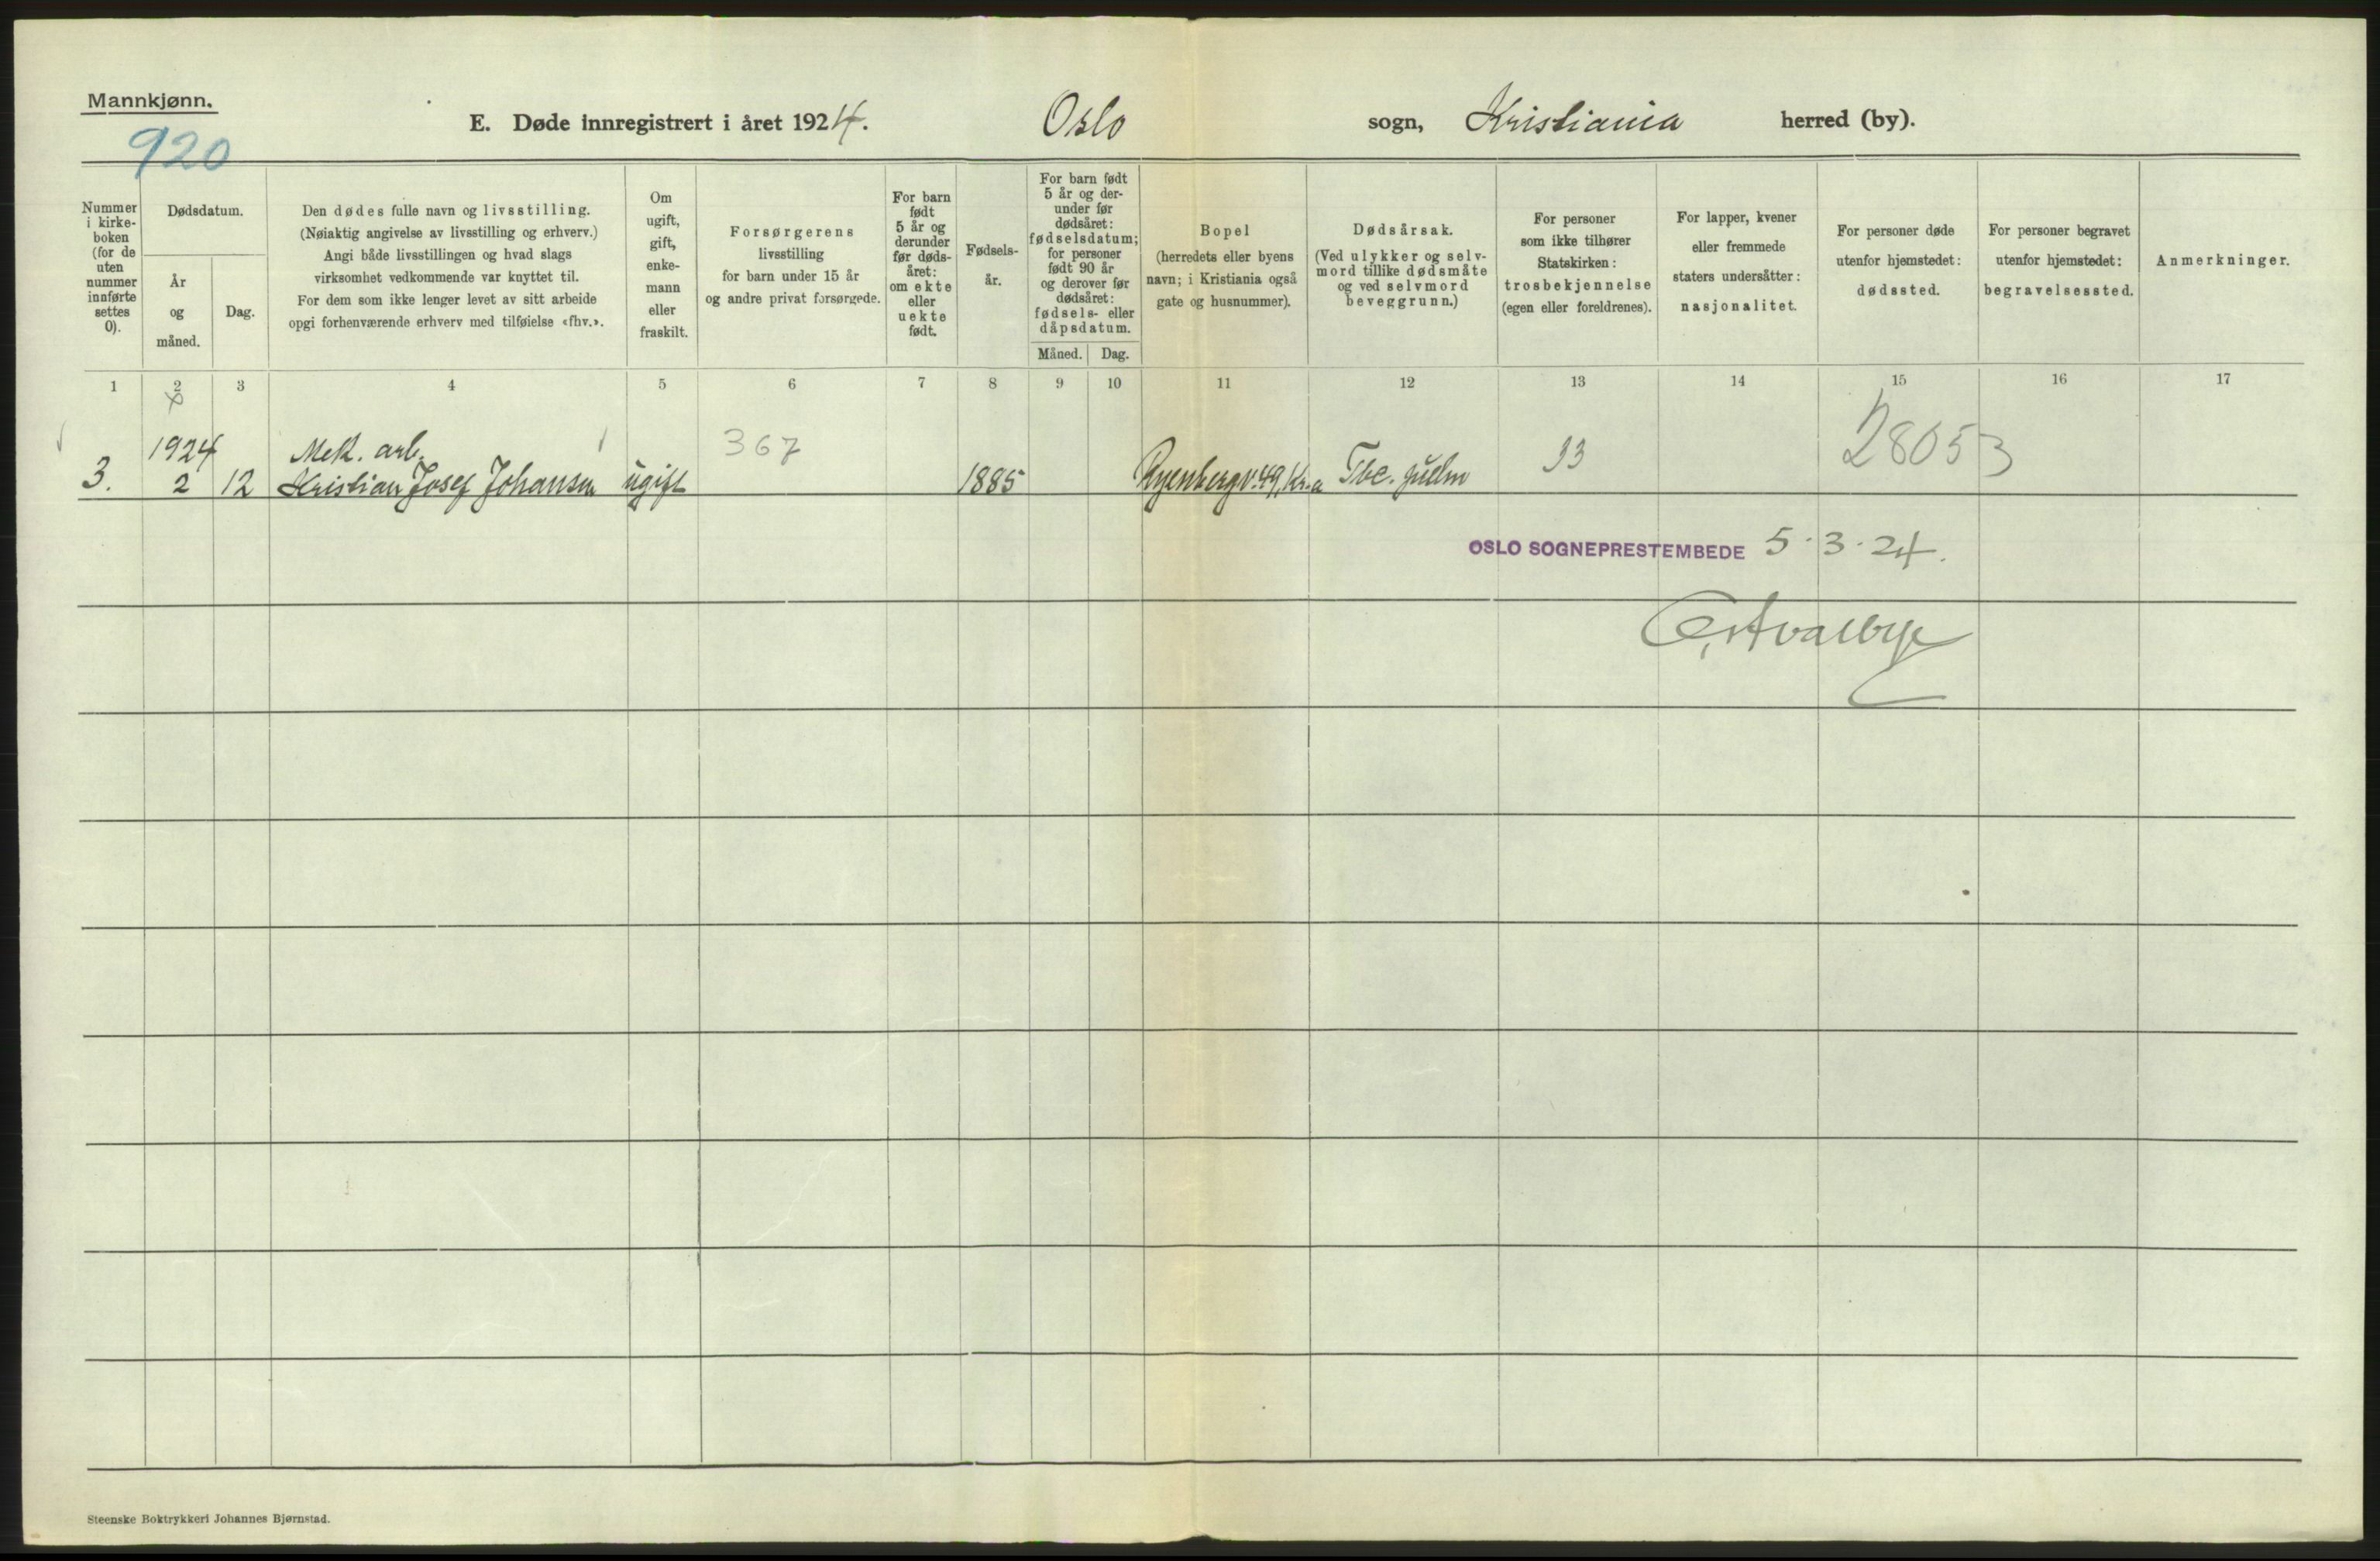 Mannkjønn.
920
E. Døde innregistrert i året 1924.
Oslo sogn, Kristiania herred (by).
Nummer i kirke- boken (for de uten nummer innførte settes 0).
Dødsdatum.
År og måned.
Dag.
Den dødes fulle navn og livsstilling.
(Nøiaktig angivelse av livsstilling og erhverv.)
Angi både livsstillingen og hvad slags
virksomhet vedkommende var knyttet til.
For dem som ikke lenger levet av sitt arbeide
opgi forhenværende erhverv med tilføielse «fhv.».
Om ugift, gift, enke- mann eller fraskilt.
Forsørgerens
livsstilling
for barn under 15 år
og andre privat forsørgede.
For barn født 5 år og derunder før døds- året: om ekte eller uekte født.
Fødsels- år.
For barn født 5 år og der- under før dødsåret: fødselsdatum; for personer født 90 år og derover før dødsåret: fødsels- eller dåpsdatum.
Måned. Dag.
Bopel
(herredets eller byens
navn; i Kristiania også
gate og husnummer).
Dødsårsak.
(Ved ulykker og selv-
mord tillike dødsmåte
og ved selvmord
beveggrunn.)
For personer
som ikke tilhører
Statskirken:
trosbekjennelse
(egen eller foreldrenes).
For lapper, kvener
eller fremmede
staters undersåtter:
nasjonalitet.
For personer døde
utenfor hjemstedet:
dødssted.
For personer begravet
utenfor hjemstedet:
begravelsessted.
Anmerkninger.
1 2 3 4 5 6 7 8 9 10 11 12 13 14 15 16 17
1924 Mek. arb. 367 28053
3. 2 12 Kristian Josef Johansen ugift 1885 Ryenbergv. 49, Kr.a Tbc. pulm 33
OSLO SOGNEPRESTEMBEDE 5.3.24.
Steenske Boktrykkeri Johannes Bjørnstad.